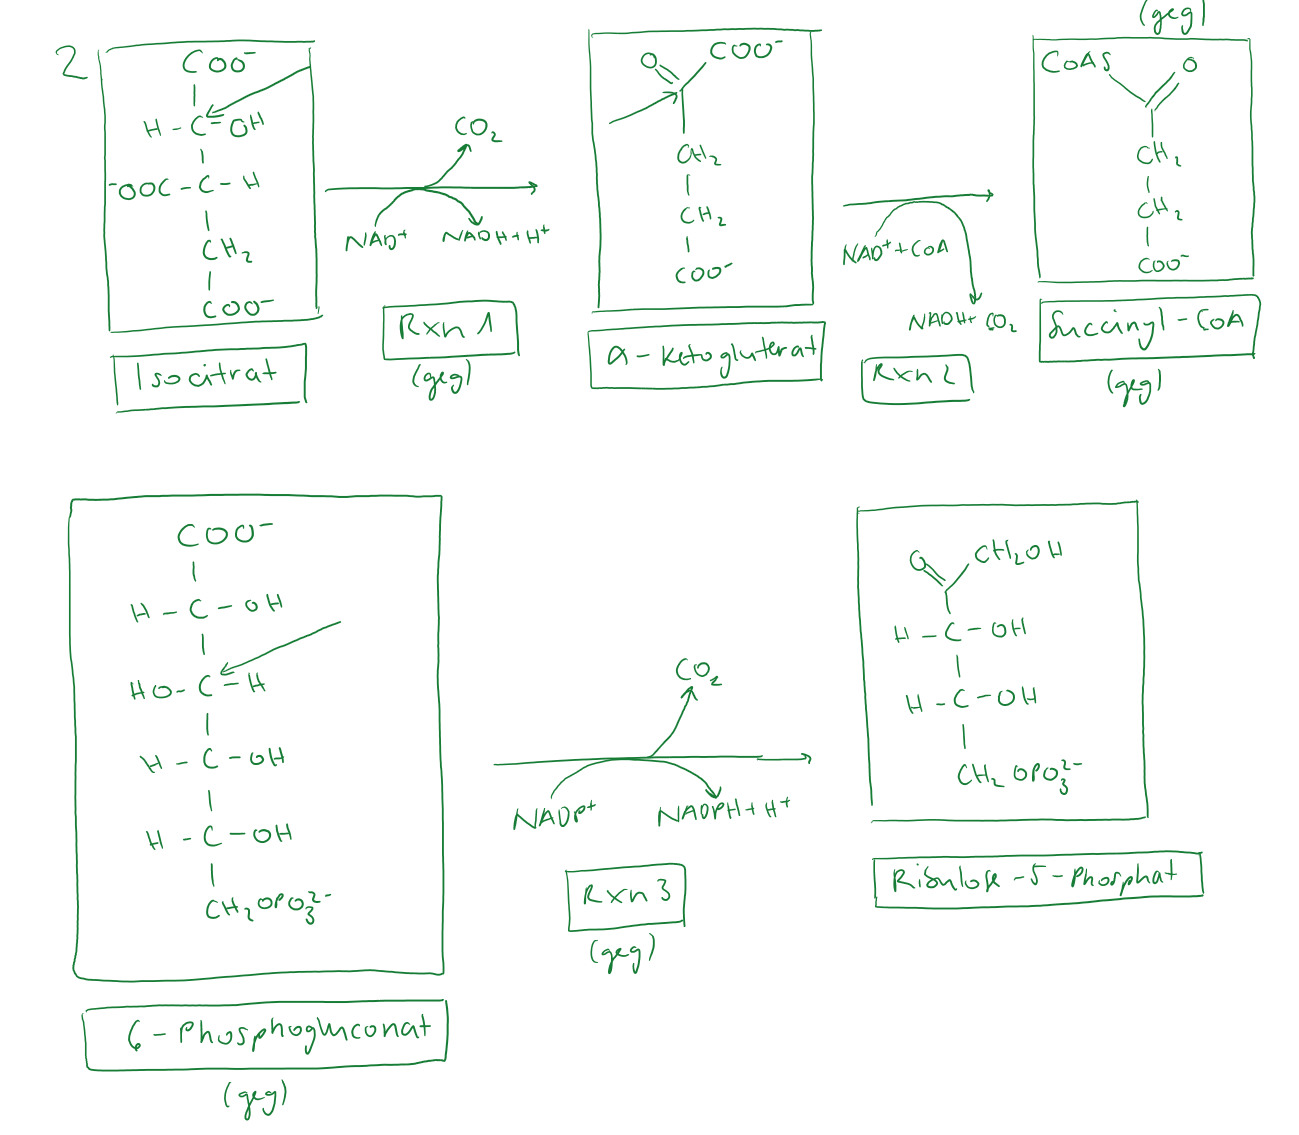 (geg)
2
COO⁻
H - C - OH
⁻OOC - C - H
CH₂
COO⁻
Isocitrat
CO₂
NAD⁺ NADH + H⁺
Rxn 1
(geg)
O COO⁻
CH₂
CH₂
COO⁻
α - Ketogluterat
NAD⁺ + CoA
NADH + CO₂
Rxn 2
CoAS O
CH₂
CH₂
COO⁻
Succinyl - CoA
(geg)
COO⁻
H - C - OH
HO - C - H
H - C - OH
H - C - OH
CH₂OPO₃²⁻
6 - Phosphogluconat
(geg)
CO₂
NADP⁺ NADPH + H⁺
Rxn 3
(geg)
O CH₂OH
H - C - OH
H - C - OH
CH₂OPO₃²⁻
Ribulose - 5 - Phosphat